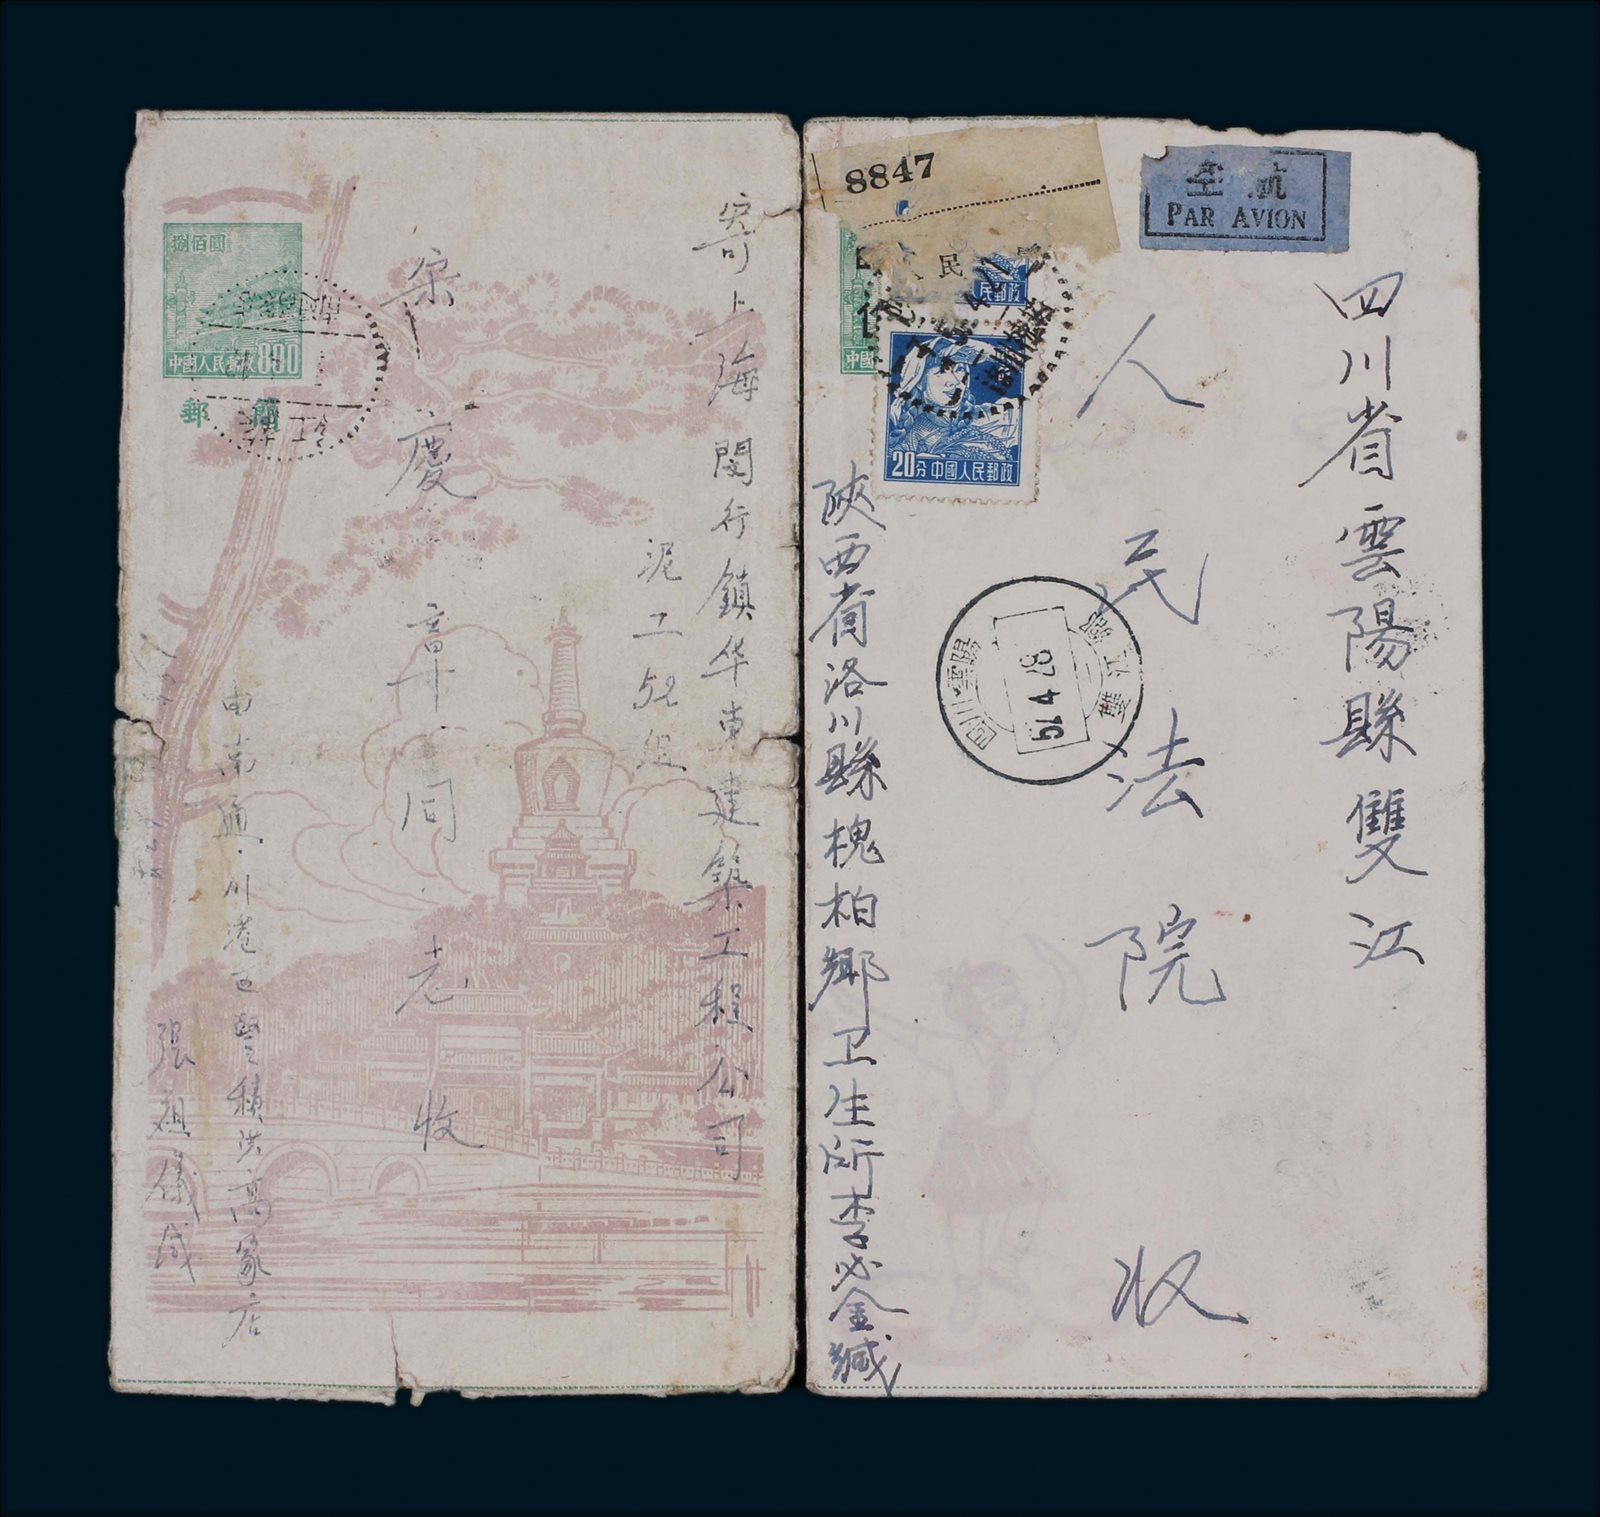 捌佰圓
中國人民郵政800
郵 簡
寄上海閔行鎮华東建築工程公司
泥工52組
宋慶章同志收
由南通川港区豐積洪高家店
張祖儀缄
8847
航空
PAR AVION
民郵政
20分中國人民郵政
四川省雲陽縣雙江
人民法院 收
陝西省洛川縣槐柏鄉卫生所李必金緘
四川雲陽
57 4 28
雙江鎮